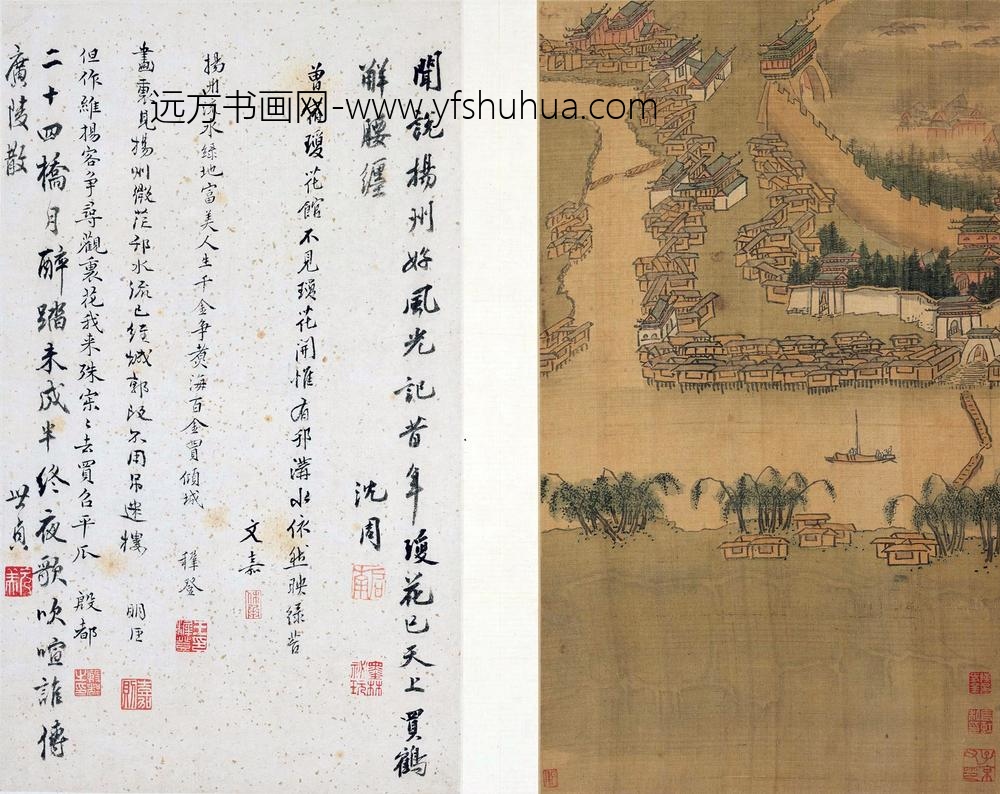 聞説揚州好風光記昔年瓊花已天上買鶴
解腰纏
沈周
曾宿瓊花館不見瓊花開惟有邗溝水依然映緑苔
文嘉
揚州水緑地富美人生千金爭賣海百金買傾城
穉登
畫裏見揚州微茫邗水流已經城郭改不用吊迷樓
明臣
但作維揚客爭尋觀裏花我来殊寀〻去買召平瓜
殷都
二十四橋月醉踏未成半終夜歌吹喧誰傳
廣陵散
世貞
远方书画网-www.yfshuhua.com